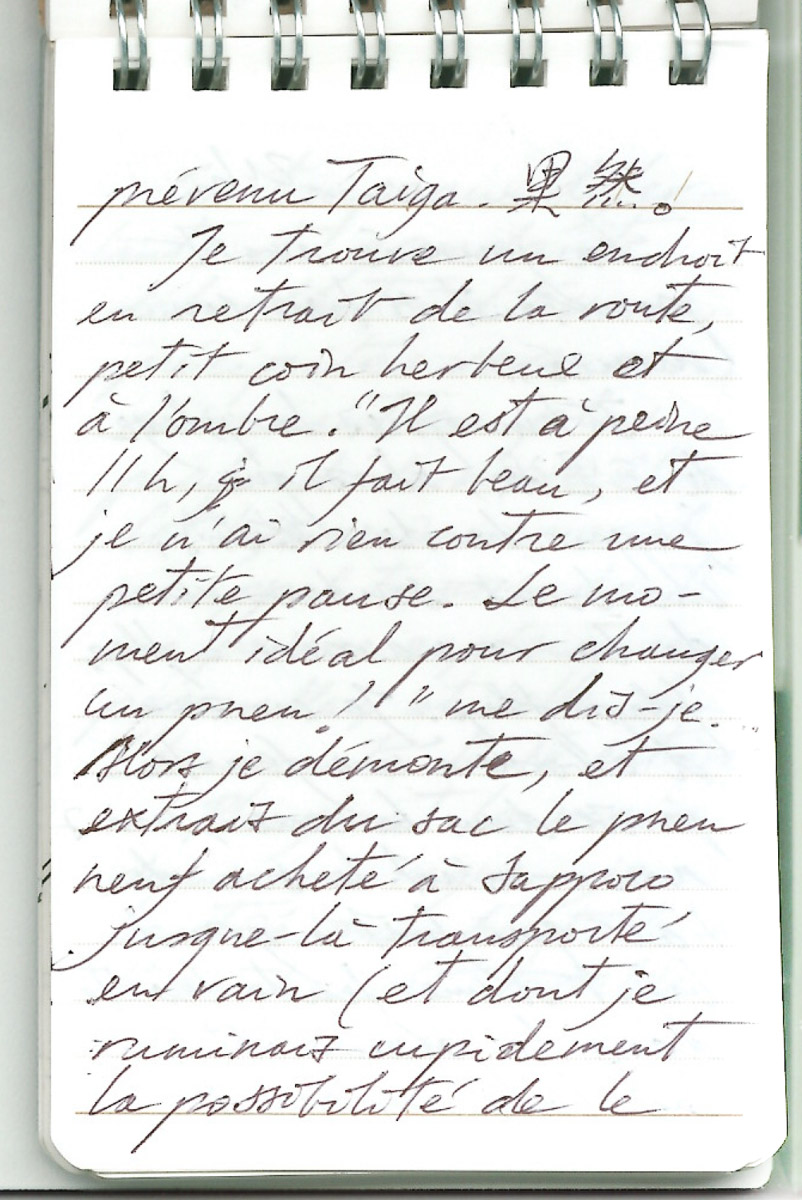 prévenu Taiga. 果然。
Je trouve un endroit
en retrait de la route,
petit coin herbeux et
à l'ombre. "Il est à peine
11h, il fait beau, et
je n'ai rien contre une
petite pause. Le mo-
ment idéal pour changer
un pneu !" me dis-je.
Alors je démonte, et
extrais du sac le pneu
neuf acheté à Sapporo
jusque-là transporté
en vain (et dont je
ruminais cupidement
la possibilité de le